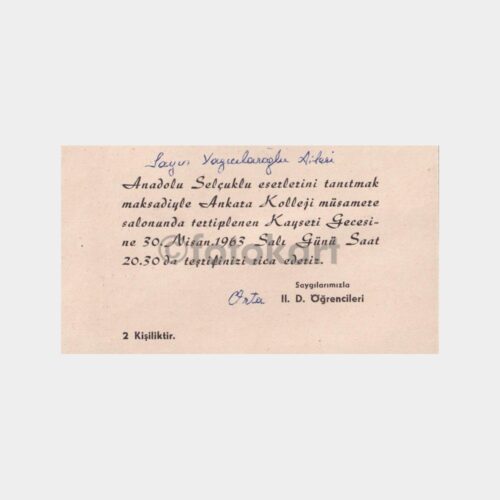 Sayın Yazıcılaroğlu Ailesi
Anadolu Selçuklu eserlerini tanıtmak
maksadiyle Ankara Kolleji müsamere
salonunda tertiplenen Kayseri Gecesi-
ne 30 Nisan.1963 Salı Günü Saat
20.30 da teşrifinizi rica ederiz.
©fotokart
Saygılarımızla
Orta II. D. Öğrencileri
2 Kişiliktir.